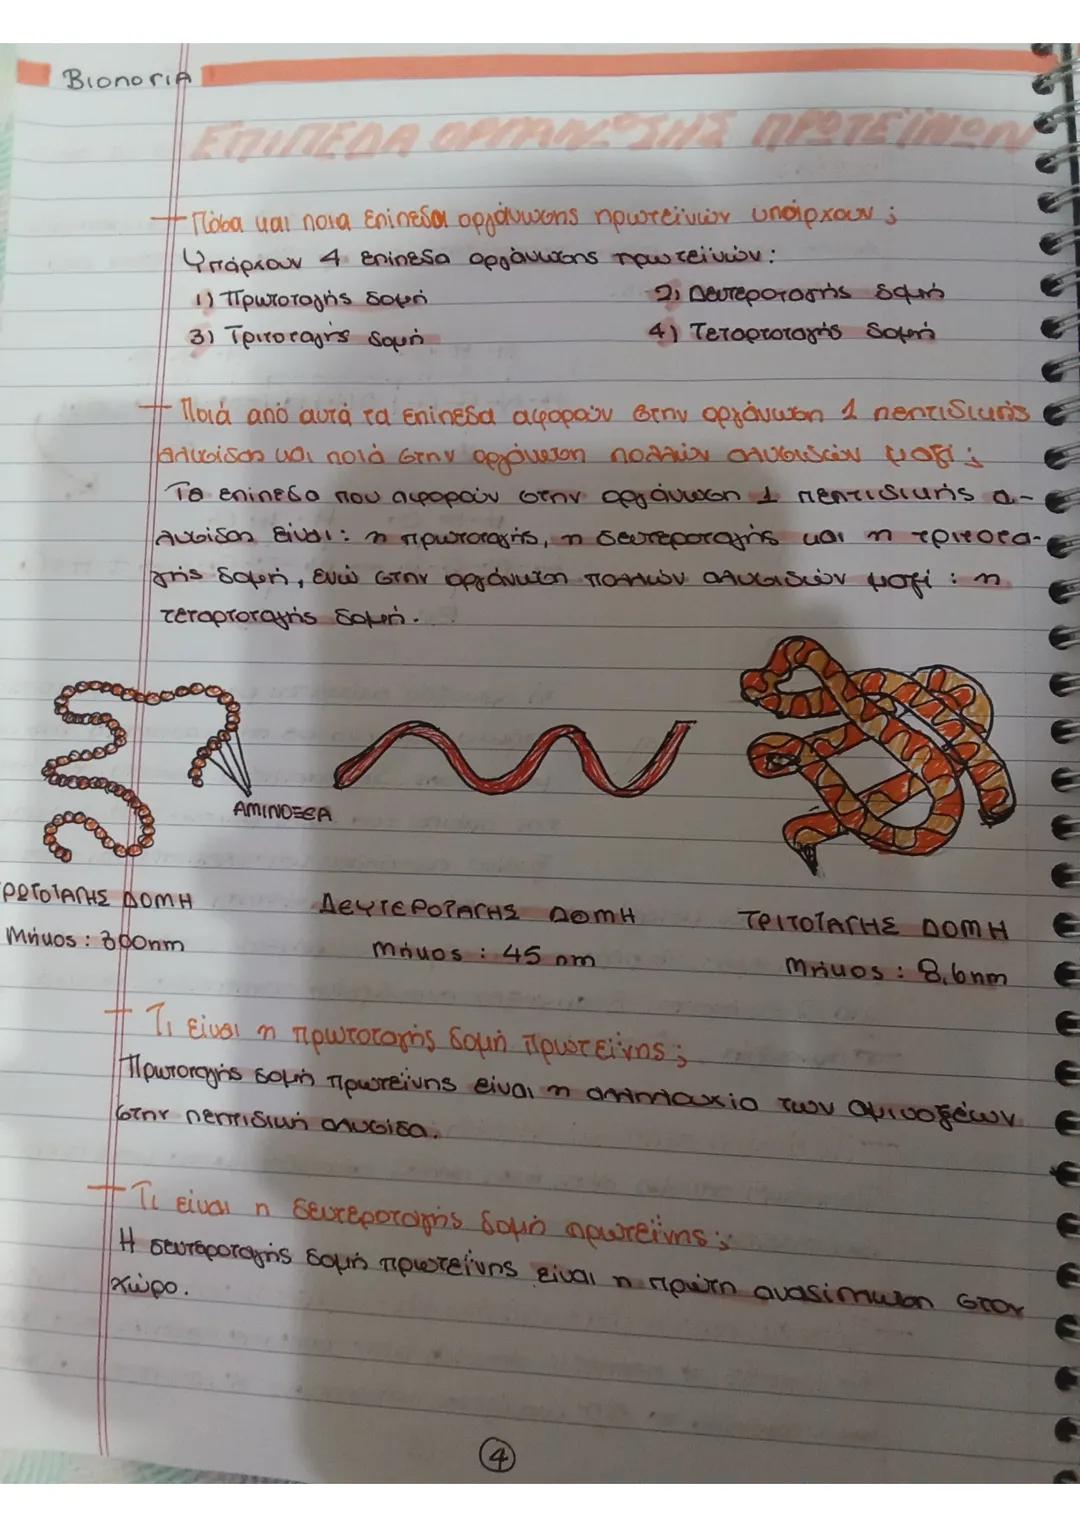 Βιολογία
ΕΠΙΠΕΔΑ ΟΡΓΑΝΩΣΗΣ ΠΡΩΤΕΪΝΩΝ
Πόσα και ποια επίπεδα οργάνωσης πρωτεϊνών υπάρχουν;
Υπάρχουν 4 επίπεδα οργάνωσης πρωτεϊνών:
1) Πρωτοταγής δομή 2) Δευτεροταγής δομή
3) Τριτοταγής δομή 4) Τεταρτοταγής δομή
Ποιά από αυτά τα επίπεδα αφορούν στην οργάνωση 1 πεπτιδικής
αλυσίδας και ποιά στην οργάνωση πολλών αλυσιδών μαζί;
Τα επίπεδα που αφορούν στην οργάνωση 1 πεπτιδικής α-
λυσίδας είναι: η πρωτοταγής, η δευτεροταγής και η τριτοτα-
γής δομή, ενώ στην οργάνωση πολλών αλυσιδών μαζί: η
τεταρτοταγής δομή.
ΑΜΙΝΟΞΕΑ
ΡΩΤΟΤΑΓΗΣ ΔΟΜΗ ΔΕΥΤΕΡΟΤΑΓΗΣ ΔΟΜΗ ΤΡΙΤΟΤΑΓΗΣ ΔΟΜΗ
Μήκος: 300nm Μήκος: 45 nm Μήκος: 8,6nm
Τι είναι η πρωτοταγής δομή πρωτεΐνης;
Πρωτοταγής δομή πρωτεΐνης είναι η αλληλουχία των αμινοξέων
στην πεπτιδική αλυσίδα.
Τι είναι η δευτεροταγής δομή πρωτεΐνης;
Η δευτεροταγής δομή πρωτεΐνης είναι η πρώτη αναδίπλωση στον
χώρο.
4